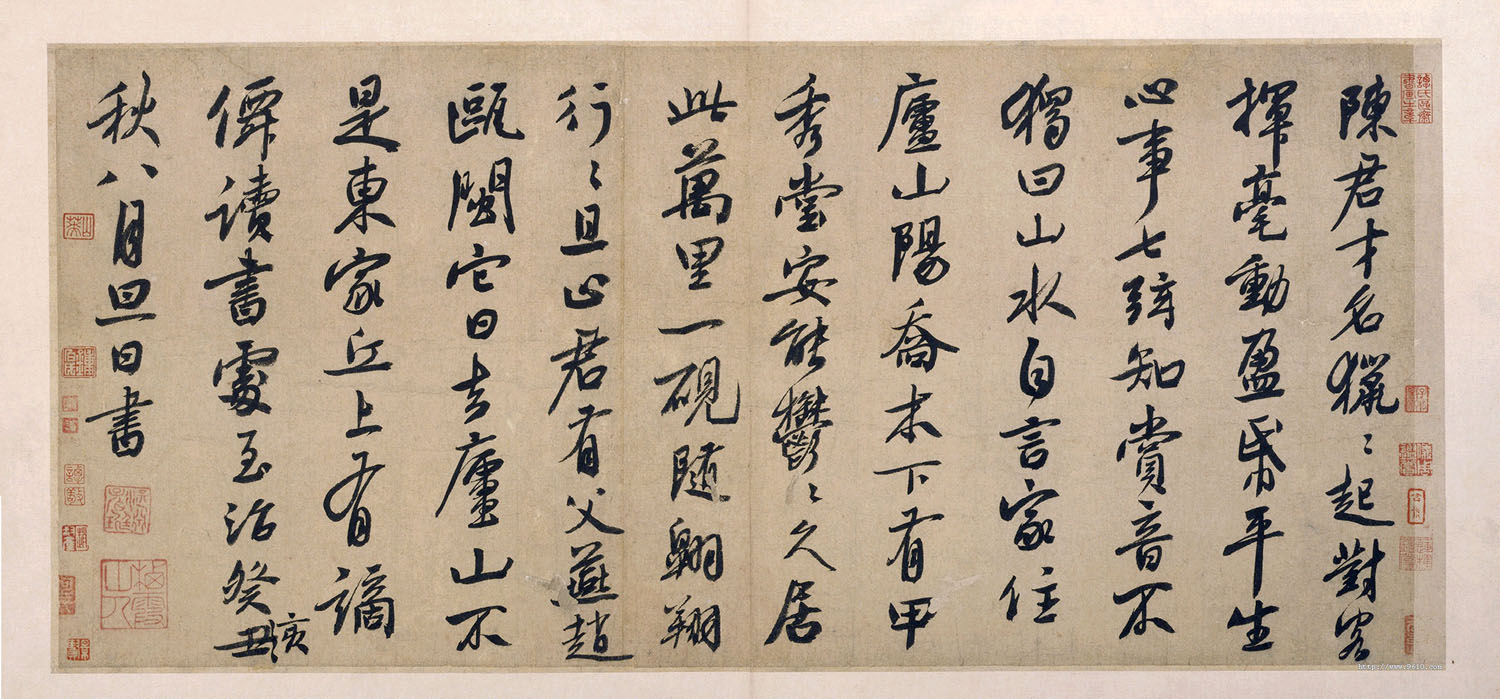 陳君才名獵〻起對客
揮毫動盈帋平生
心事七弦知賞音不
獨曰山水自言家住
廬山陽喬木下有甲
秀堂安能鬱〻久居
此萬里一硯隨翱翔
行〻且止君有父燕趙
甌閩它日去廬山不
是東家丘上有謫
僊讀書處至治癸丑亥
秋八月旦日書
棲霞山人
http://www.9610.com